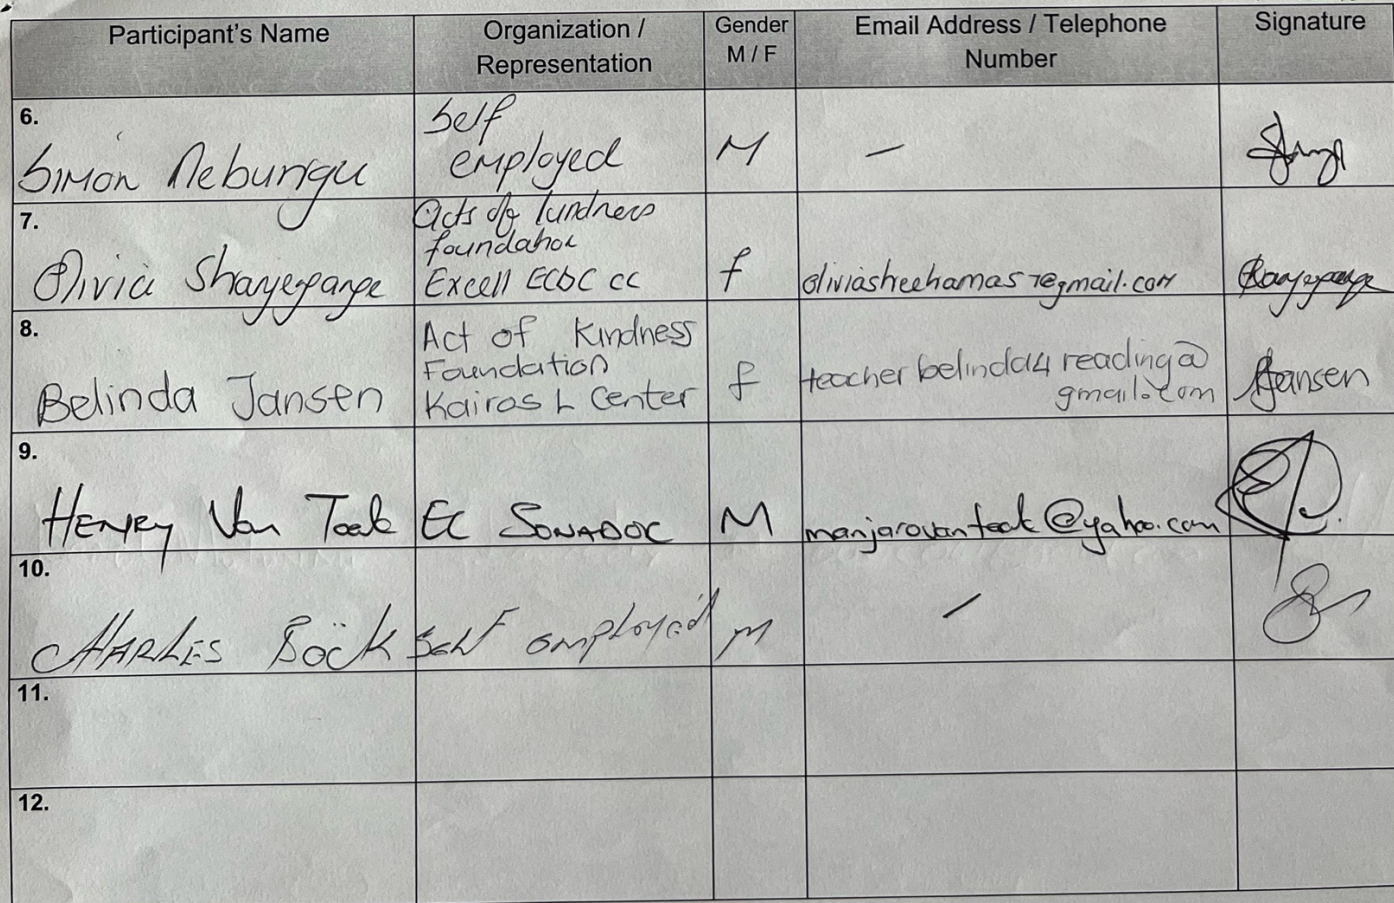 Participant's Name Organization / Representation Gender M / F Email Address / Telephone Number Signature
6. Simon Nebungu Self employed M –
7. Olivia Shayepange Acts of kindness foundation Excell ECDC cc f
8. Belinda Jansen Act of Kindness Foundation Kairos L Center f teacher belinda4 reading@ gmail.com Jansen
9. HENRY Van Teek EC SONADOC M
10. CHARLES Böck Self employed M –
11.
12.